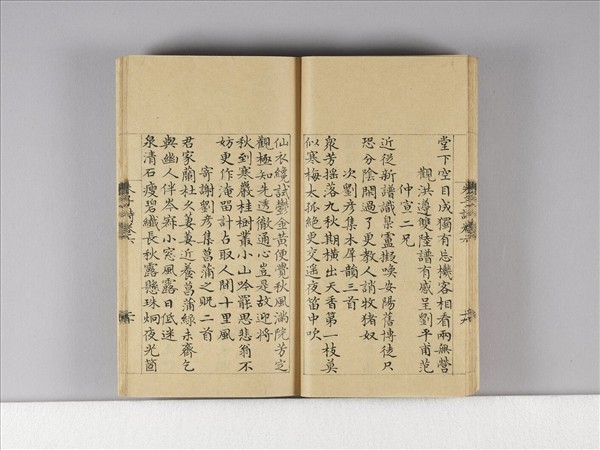 堂下空目成獨有忘機客相看兩無營
觀洪遵雙陸譜有感呈劉平甫范
仲宣二兄
近從新譜識梟盧擬喚安陽舊博徒只
恐分陰閑過了更教人誚牧猪奴
次劉彥集木犀韻三首
衆芳搖落九秋期橫出天香第一枝莫
似寒梅太孤絕更交遥夜笛中吹
仙衣纔試鬱金黃便覺秋風滿院芳定
觀極知先透徹通心豈是故迎將
秋到寒巖桂樹叢小山吟罷思悲翁不
妨更作淹留計占取人間十里風
寄謝劉彥集菖蒲之貺二首
君家蘭杜久萋萋近養菖蒲緑未齊乞
與幽人伴岑寂小窓風露日低迷
泉清石瘦碧纖長秋露懸珠炯夜光箇